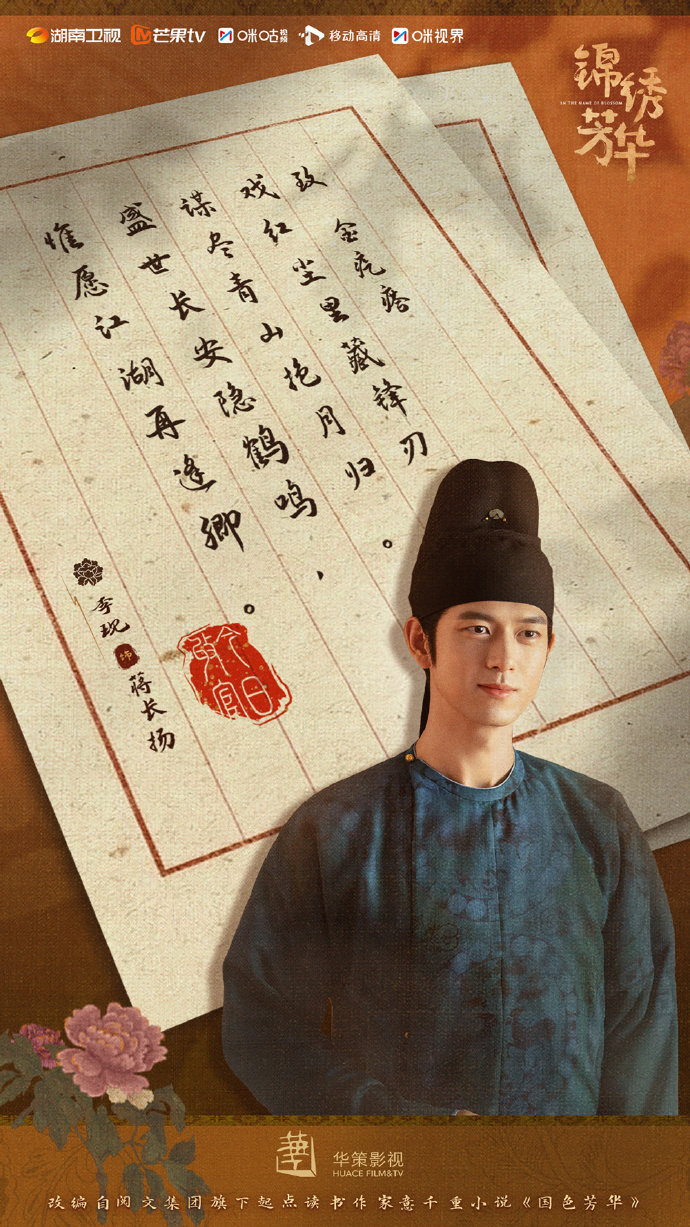 湖南卫视 芒果tv 咪咕视频 移动高清 咪视界
锦绣芳华
IN THE NAME OF BLOSSOM
致 金疙瘩
戏红尘里藏锋刃
谋尽青山抱月归。
盛世长安隐鹤鸣，
惟愿江湖再逢卿。
今日
李现 饰 蒋长扬
华策影视
HUACE FILM&TV
改编自阅文集团旗下起点读书作家意千重小说《国色芳华》